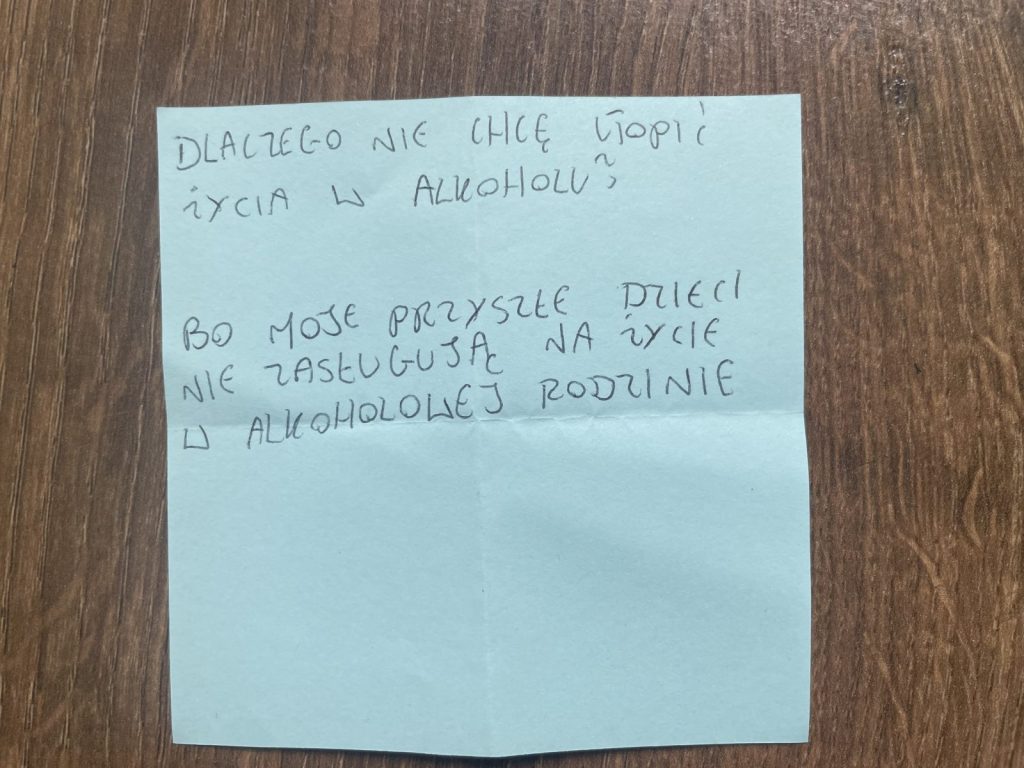 DLACZEGO NIE CHCĘ UTOPIĆ
ŻYCIA W ALKOHOLU?
BO MOJE PRZYSZŁE DZIECI
NIE ZASŁUGUJĄ NA ŻYCIE
W ALKOHOLOWEJ RODZINIE